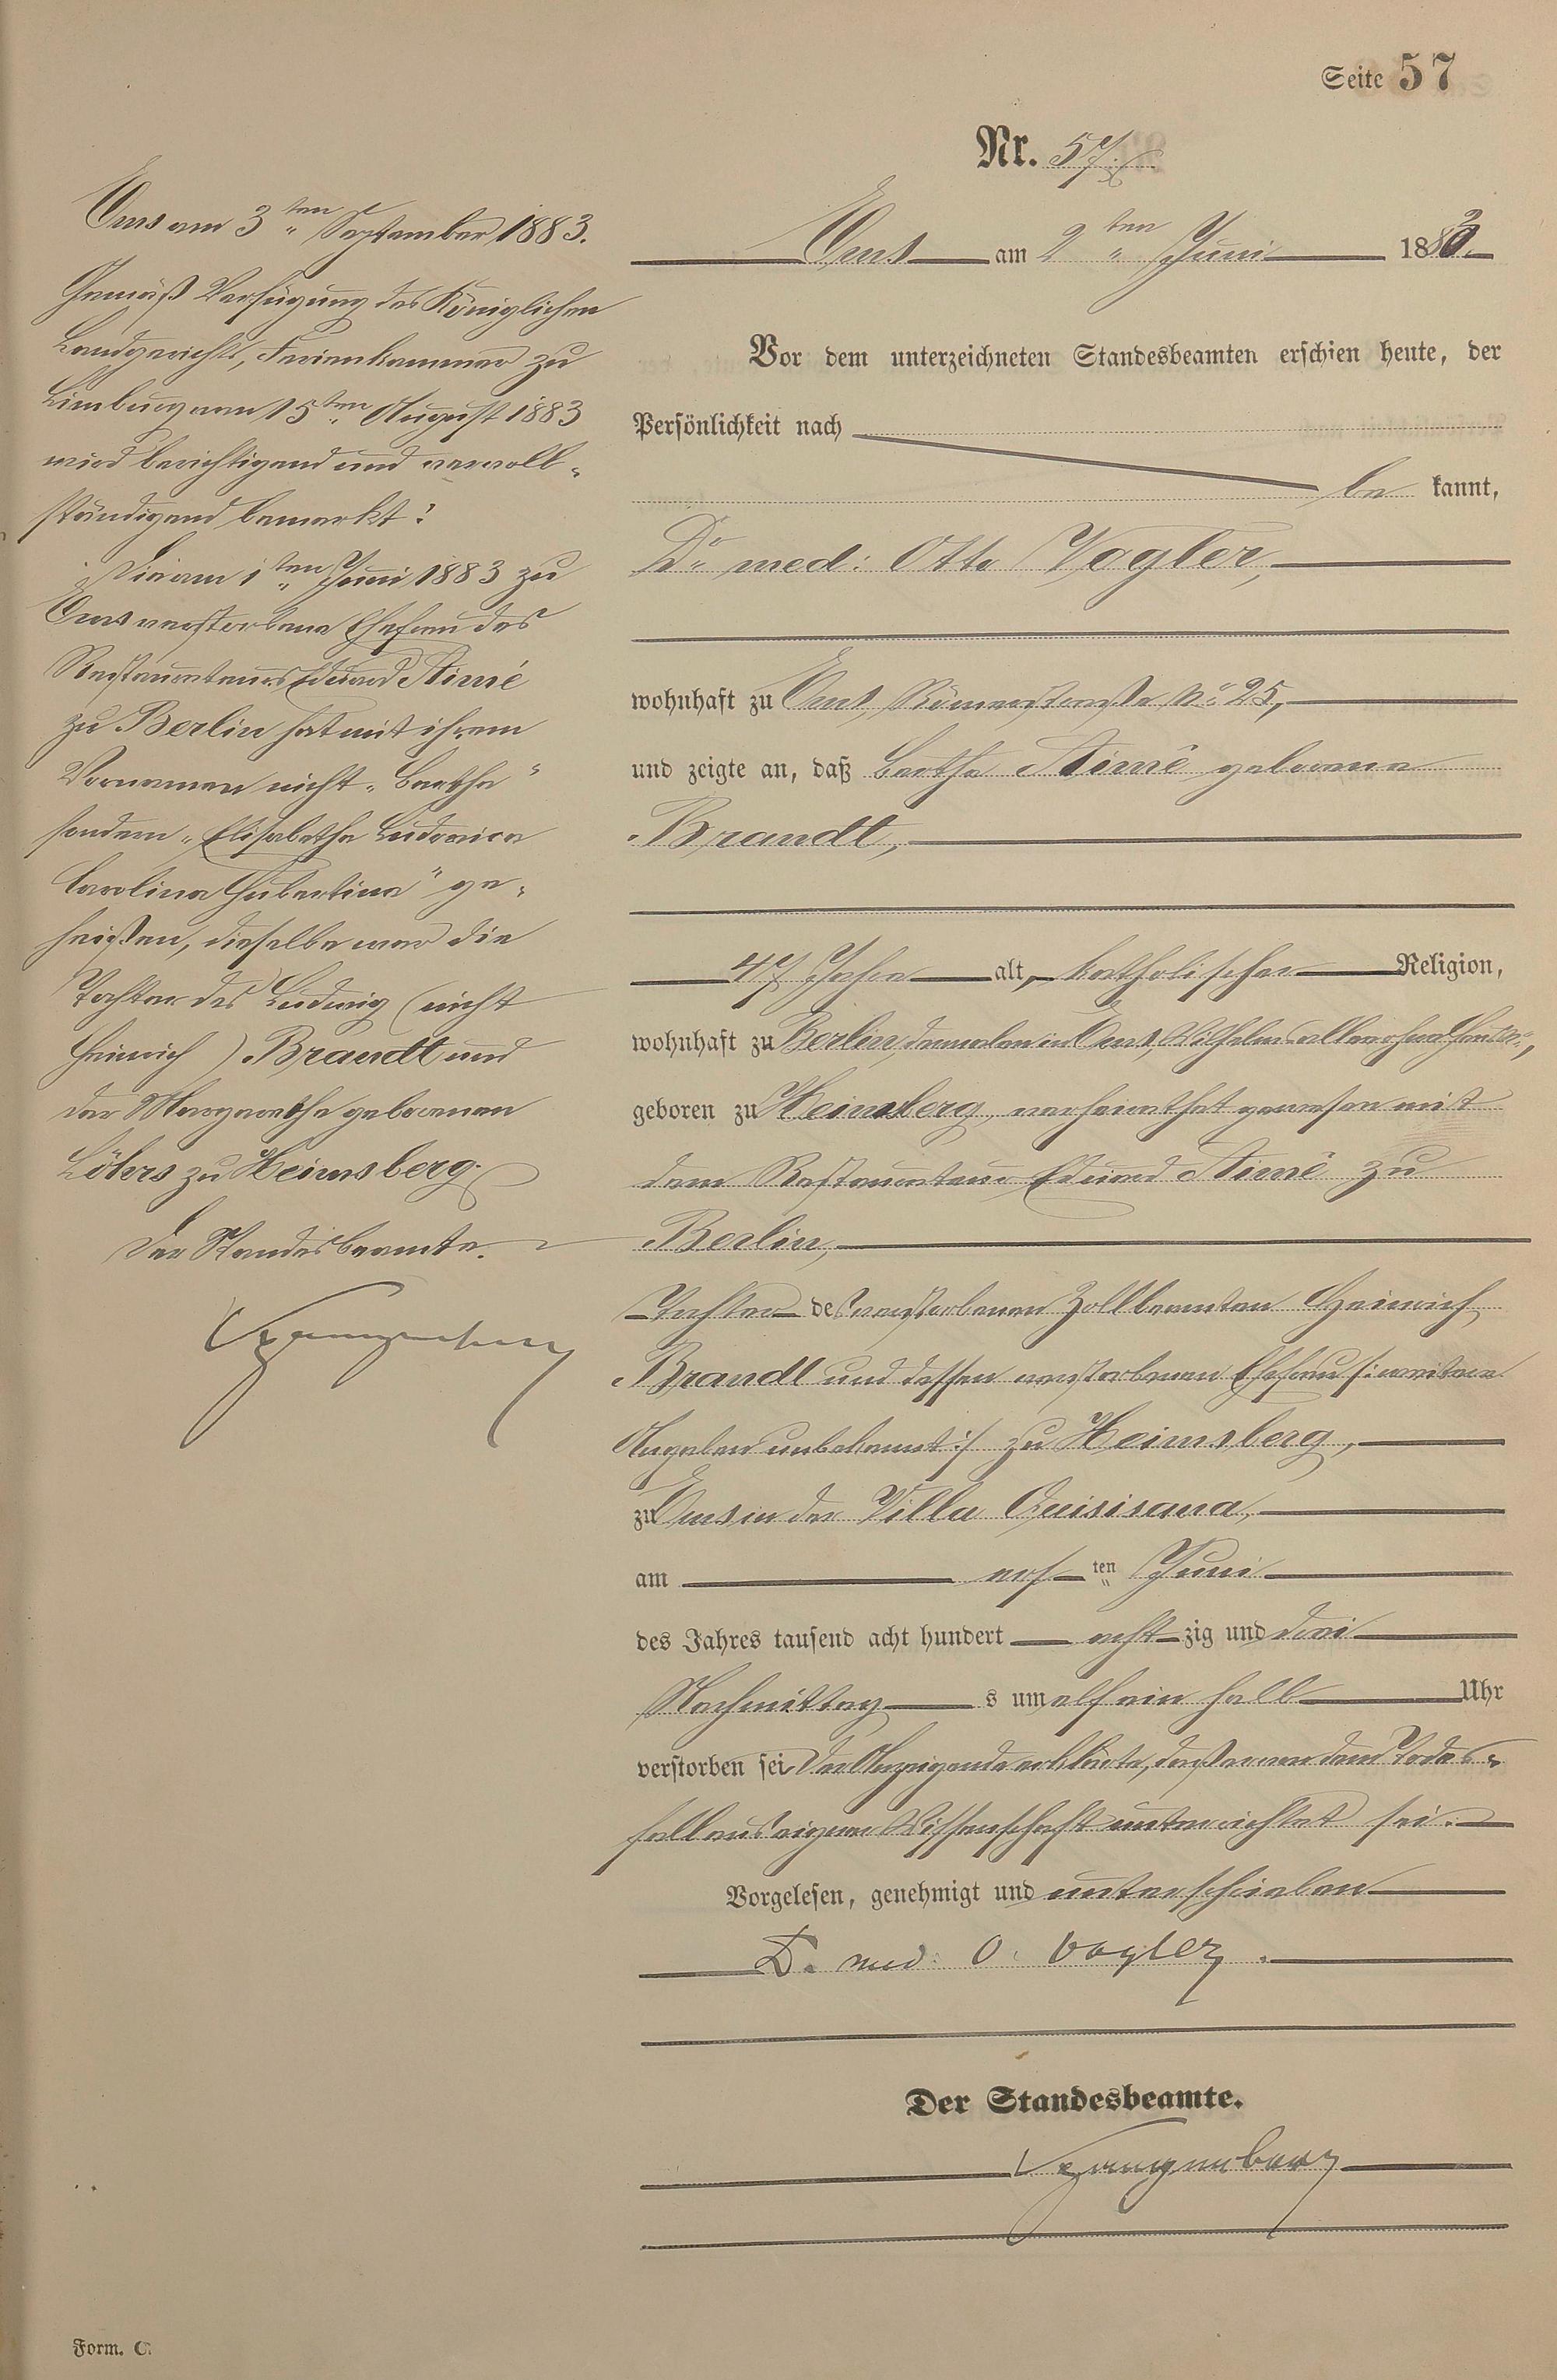 Seite 57
Nr. 57.
Ems am 2ten Juni 1883.
Vor dem unterzeichneten Standesbeamten erschien heute, der
Persönlichkeit nach
be kannt,
Dr med: Otto Vogler,
wohnhaft zu Ems, Römerstraße No 25,
und zeigte an, daß Bertha Aimé geborene
Brandt,
47 Jahre alt, katholischer Religion,
wohnhaft zu Berlin, dermalen in Ems, Wilhelmsallee ohne Haus No,
geboren zu Heinsberg, verheirathet gewesen mit
dem Restaurateur Eduard Aimé zu
Berlin,
Tochter des verstorbenen Zollbeamten Heinrich
Brandt und dessen verstorbenen Ehefrau /: weitere
Angaben unbekannt :/ zu Heinsberg,
zu Ems in der Villa Quisisana,
am ersten Juni
des Jahres tausend acht hundert achtzig und drei
Nachmittags um elf ein halb Uhr
verstorben sei. Der Anzeigende erklärte, daß er von dem Todes-
fall aus eigener Wissenschaft unterrichtet sei.
Vorgelesen, genehmigt und unterschrieben
Dr. med: O. Vogler.
Der Standesbeamte.
Ems am 3ten September 1883.
Gemäß Verfügung des Königlichen
Landgerichts, Ferienkammer zu
Limburg vom 15ten August 1883
wird berichtigend und vervoll-
ständigend bemerkt:
Die am 1ten Juni 1883 zu
Ems verstorbene Ehefrau des
Restaurateurs Eduard Aimé
zu Berlin hat mit ihrem
Vornamen nicht "Bertha"
sondern "Elisabetha Ludovica
Carolina Hubertina" ge-
heißen, dieselbe war die
Tochter des Ludwig (nicht
Heinrich) Brandt und
der Margaretha geborenen
Löhrs zu Heinsberg.
Der Standesbeamte.
Form. C.